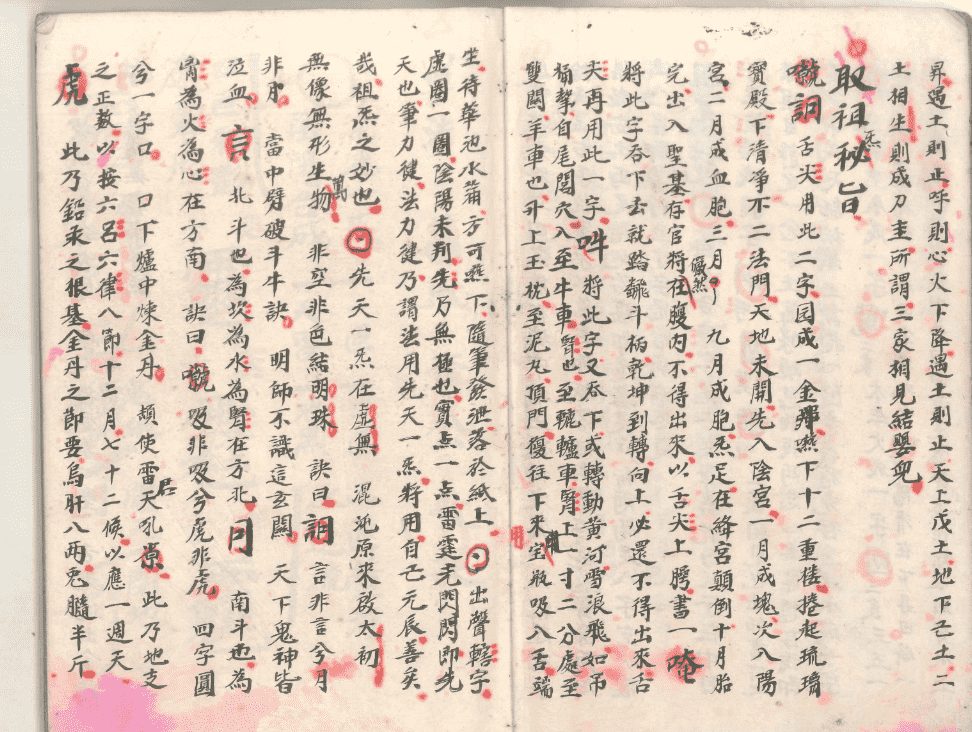 昇遇土則止呼則心火下降遇土則止天上戊土地下己土二
土相生則成刀圭所謂三家相見結嬰兒
取祖炁秘旨
唬𧥺舌尖用此二字园成一金彈嚥下十二重楼捲起琉璃
寳殿下清凈不二法門天地未開先入陰宮一月成塊次入陽
宮二月成血胞三月 儼然 九月成胞炁足在絳宮顛倒十月胎
完出入聖基存官将在腹内不得出來以舌尖上腭書一唵
将此字吞下去就踏 斗柄乾坤到轉向上必還不得出來舌
夫再用此一字吽将此字又吞下或轉動黄河雪浪飛如吊
桶挈自尾閭穴入至牛車腎也至轆轤車腎上一寸二分處至
雙関羊車也升上玉枕至泥丸頂門復往下來宝瓶吸入舌端
坐待華池水滿方可嚥下隨筆發泄落於紙上 出聲轄字
虚圈一圏陰陽未判先乃無極也實点一点雷霆光閃閃即先
天也筆力健法力健乃謂法用先天一炁将用自己元辰善矣
哉祖炁之妙也 先天一炁在虚無 混沌原來啟太初
無像無形生萬物 非空非色結明珠 訣曰𧥺言非言兮月
非月 當中劈破斗牛訣 明師不識這玄関 天下鬼神皆
泣血 言北斗也為坎為水為腎在方北 月南斗也為
膏為火為心在方南 訣曰唬吸非吸兮虎非虎 四字圓
兮一字口 口下爐中煉金丹 頡使雷君天吼 此乃地支
之正数以按六呂六律八節十二月七十二候以應一週天
虎 此乃鉛汞之根基金丹之即要烏肝八两兎髓半斤